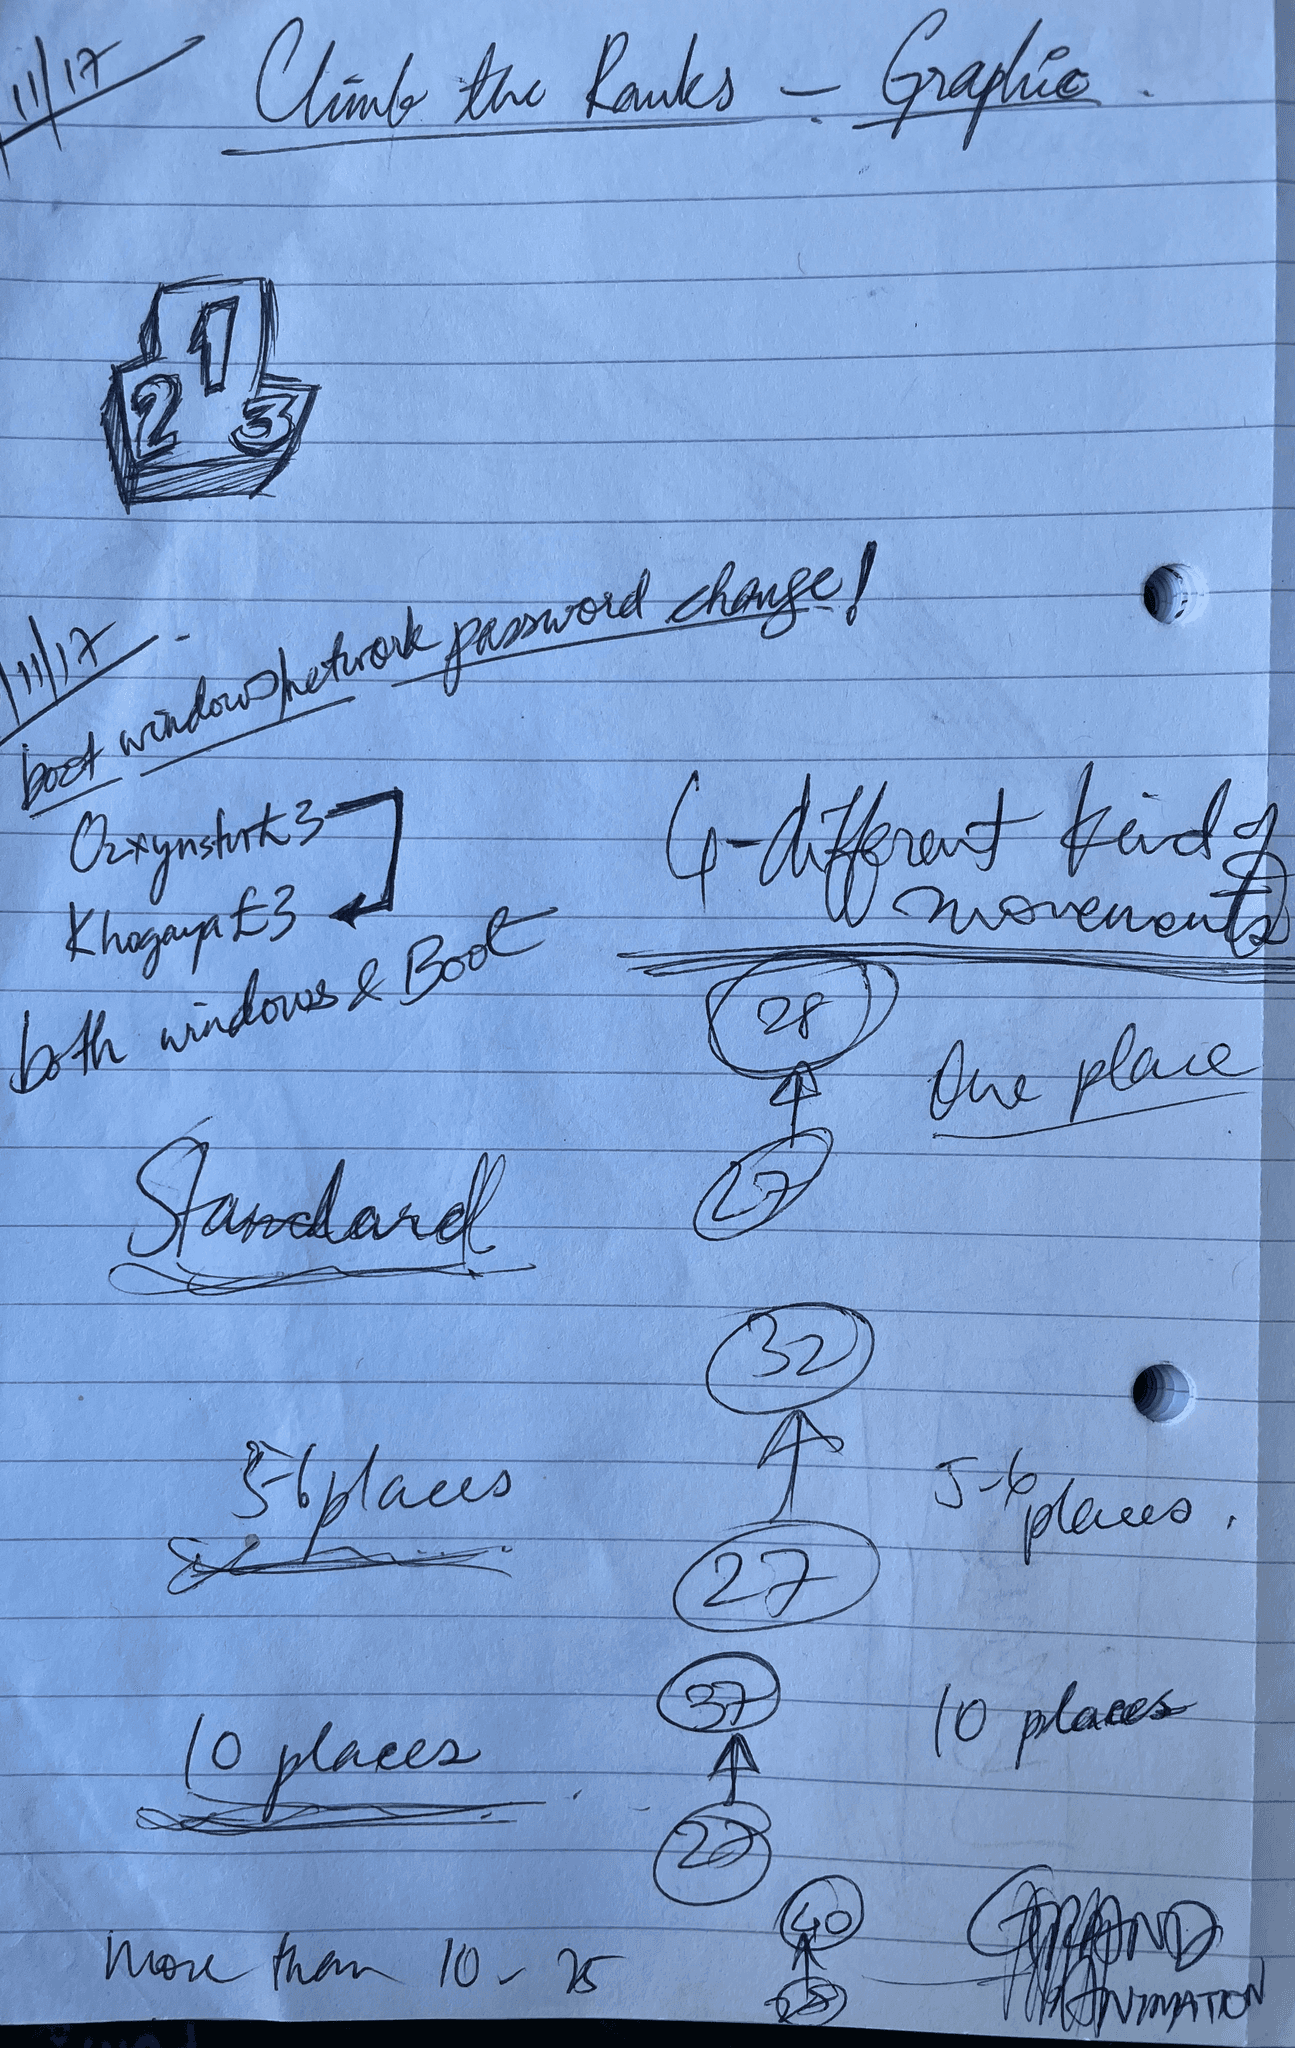 11/17
Climb the Ranks - Graphic.
1
2 3
11/17
boot windows/network password change!
Khogaya£3
both windows & Boot
4-different kind of
movements
28
One place
27
Standard
32
5-6 places
5-6
places.
27
37
10 places
10 places
27
40
GRAND
ANIMATION
more than 10 - 25